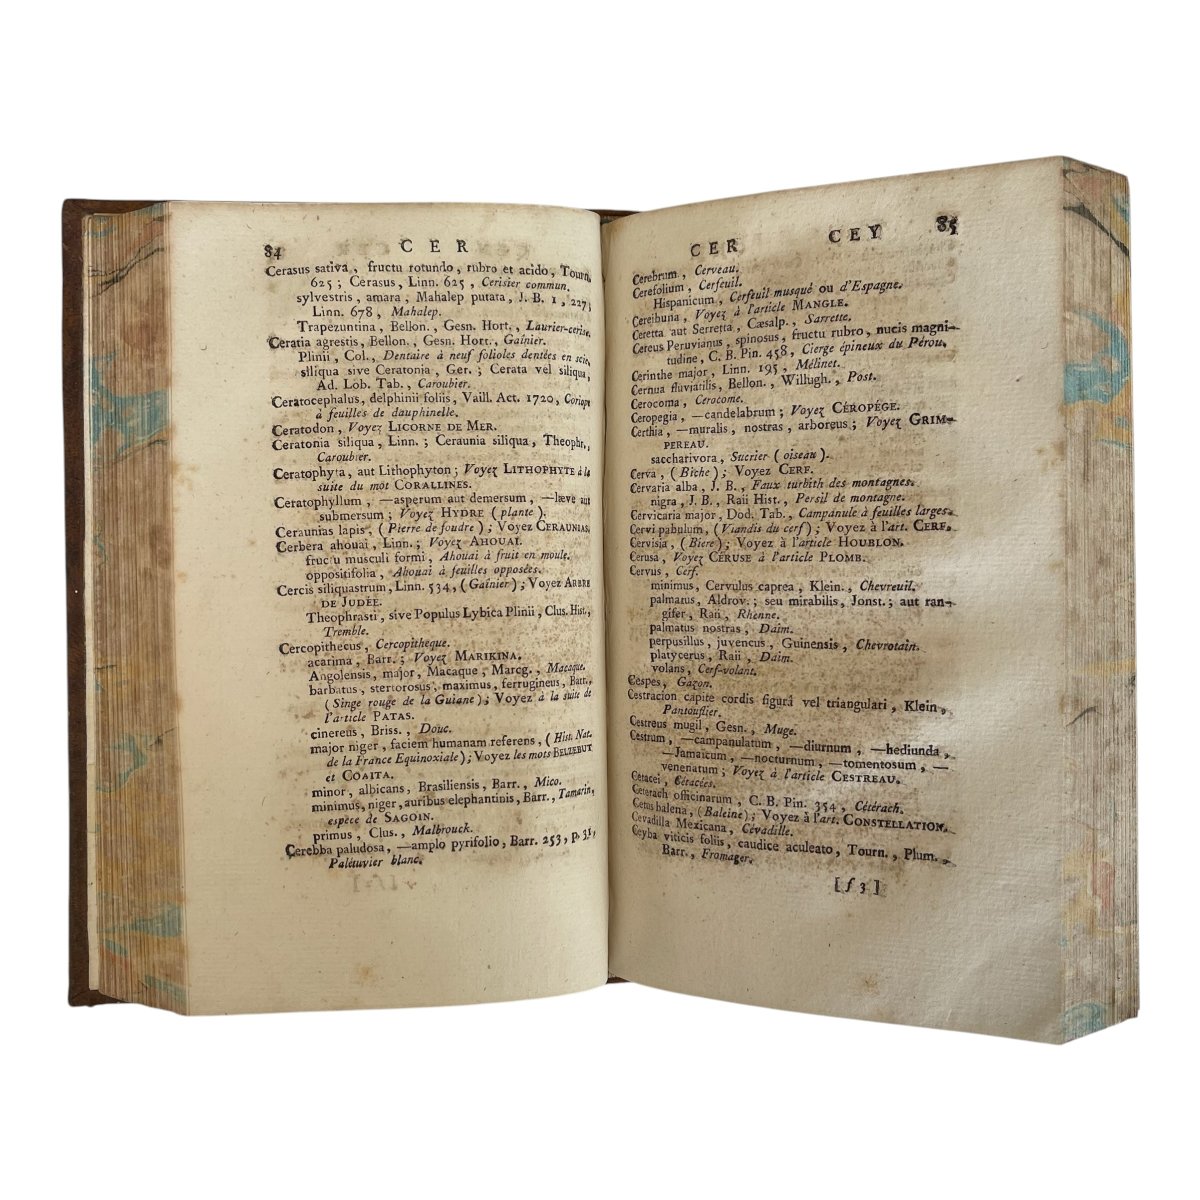 84 CER
Cerasus sativa, fructu rotundo, rubro et acido, Tourn.
625; Cerasus, Linn. 625, Cerisier commun.
sylvestris, amara, Mahalep putata, J. B. 1, 227;
Linn. 678, Mahalep.
Trapezuntina, Bellon., Gesn. Hort., Laurier-cerise.
Ceratia agrestis, Bellon., Gesn. Hort., Gaînier.
Plinii, Col., Dentaire à neuf folioles dentées en scie.
siliqua sive Ceratonia, Ger.; Cerata vel siliqua,
Ad. Lob. Tab., Caroubier.
Ceratocephalus, delphinii foliis, Vaill. Act. 1720, Coriope
à feuilles de dauphinelle.
Ceratodon, Voyez LICORNE DE MER.
Ceratonia siliqua, Linn.; Ceraunia siliqua, Theophr.,
Caroubier.
Ceratophyta, aut Lithophyton; Voyez LITHOPHYTE à la
suite du mot CORALLINES.
Ceratophyllum, —asperum aut demersum, —læve aut
submersum; Voyez HYDRE (plante).
Ceraunias lapis, (Pierre de foudre); Voyez CERAUNIAS.
Cerbera ahouai, Linn.; Voyez AHOUAI.
fruc u musculi formi, Ahouai à fruit en moule.
oppositifolia, Ahouai à feuilles opposées.
Cercis siliquastrum, Linn. 534, (Gaînier); Voyez ARBRE
DE JUDÉE.
Theophrasti, sive Populus Lybica Plinii, Clus. Hist.,
Tremble.
Cercopithecus, Cercopitheque.
acarima, Barr.; Voyez MARIKINA.
Angolensis, major, Macaque, Marcg., Macaque.
barbatus, stertorosus, maximus, ferrugineus, Barr.,
(Singe rouge de la Guiane); Voyez à la suite de
l'article PATAS.
cinereus, Briss., Douc.
major niger, faciem humanam referens, (Hist. Nat.
de la France Equinoxiale); Voyez les mots BELZEBUT
et COAITA.
minor, albicans, Brasiliensis, Barr., Mico.
minimus, niger, auribus elephantinis, Barr., Tamarin,
espèce de SAGOIN.
primus, Clus., Malbrouck.
Cerebba paludosa, —amplo pyrifolio, Barr. 253, p. 31,
Palétuvier blanc.
CER CEY 85
Cerebrum, Cerveau.
Cerefolium, Cerfeuil.
Hispanicum, Cerfeuil musqué ou d'Espagne.
Cereibuna, Voyez à l'article MANGLE.
Ceretta aut Serretta, Cæsalp., Sarrette.
Cereus Peruvianus, spinosus, fructu rubro, nucis magni-
tudine, C. B. Pin. 458, Cierge épineux du Pérou.
Cerinthe major, Linn. 195, Mélinet.
Cernua fluviatilis, Bellon., Willugh., Post.
Cerocoma, Cerocome.
Ceropegia, —candelabrum; Voyez CÉROPÉGE.
Certhia, —muralis, nostras, arboreus; Voyez GRIM-
PEREAU.
saccharivora, Sucrier (oiseau).
Cerva, (Biche); Voyez CERF.
Cervaria alba, J. B., Faux turbith des montagnes.
nigra, J. B., Raii Hist., Persil de montagne.
Cervicaria major, Dod. Tab., Campanule à feuilles larges.
Cervi pabulum, (Viandis du cerf); Voyez à l'art. CERF.
Cervisia, (Biere); Voyez à l'article HOUBLON.
Cerusa, Voyez CÉRUSE à l'article PLOMB.
Cervus, Cerf.
minimus, Cervulus caprea, Klein., Chevreuil.
palmatus, Aldrov.; seu mirabilis, Jonst.; aut ran-
gifer, Raii, Rhenne.
palmatus nostras, Daim.
perpusillus, juvencus, Guinensis, Chevrotain.
platycerus, Raii, Daim.
volans, Cerf-volant.
Cespes, Gazon.
Cestracion capite cordis figurâ vel triangulari, Klein,
Pantouflier.
Cestreus mugil, Gesn., Muge.
Cestrum, —campanulatum, —diurnum, —hediunda,
—Jamaïcum, —nocturnum, —tomentosum, —
venenatum; Voyez à l'article CESTREAU.
Cetacei, Cétacées.
Ceterach officinarum, C. B. Pin. 354, Cétérach.
Cetus balena, (Baleine); Voyez à l'art. CONSTELLATION.
Cevadilla Mexicana, Cévadille.
Ceyba viticis foliis, caudice aculeato, Tourn., Plum.,
Barr., Fromager.
[f 3]